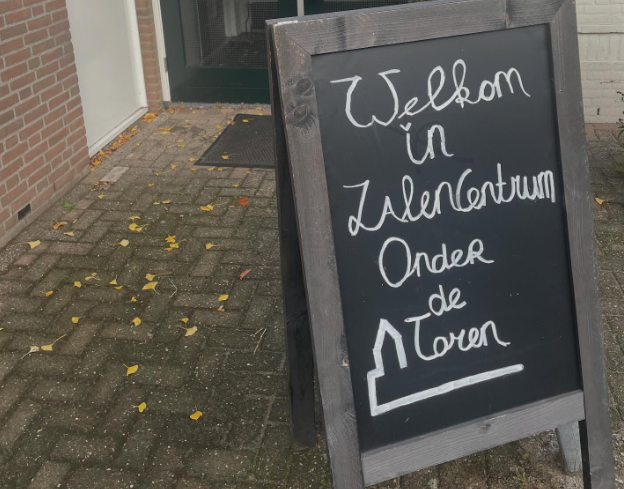 Welkom
in
ZalenCentrum
Onder
de
Toren